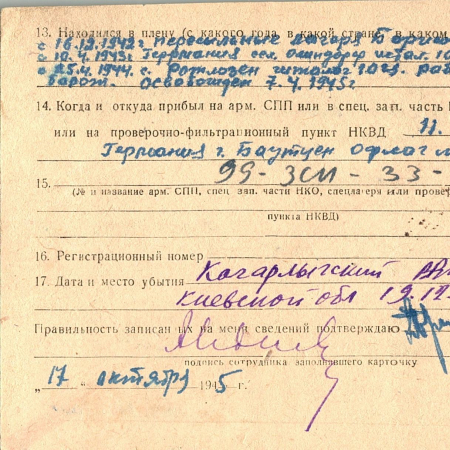 13. Находился в плену (с какого года, в какой стране, в каком
с 16.12.1942 г. пересыльные лагеря
с 10.4.1943 г. Германия сел.
с 25.4.1944 г.
Освобожден 7.4.1945 г.
14. Когда и откуда прибыл на арм. СПП или в спец. зап. часть
или на проверочно-фильтрационный пункт НКВД 11.
Германия г. Баутцен Офлаг
15. 99-ЗСП-33-
(№ и название арм. СПП, спец. зап. части НКО, спецлагеря или прове
пункта НКВД)
16. Регистрационный номер
17. Дата и место убытия Кагарлыкский
Киевской обл 19.12
Правильность записанных на меня сведений подтверждаю
подпись сотрудника заполнившего карточку
„17 " октября 1945 г.